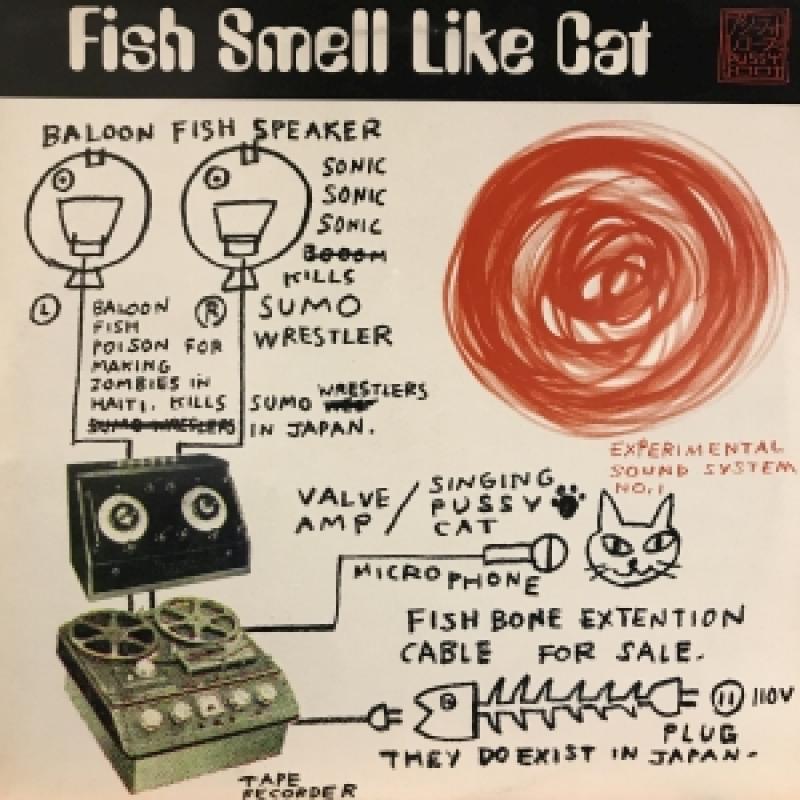 Fish Smell Like Cat
PUSSY
FOOT
BALOON FISH SPEAKER
SONIC
SONIC
SONIC
BOOOM
KILLS
SUMO
WRESTLER
L
R
BALOON
FISH
POISON FOR
MAKING
ZOMBIES IN
HAITI. KILLS SUMO WRESTLERS
SUMO WRESTLERS IN JAPAN.
EXPERIMENTAL
SOUND SYSTEM
NO.1
VALVE / SINGING
AMP PUSSY
CAT
MICROPHONE
FISH BONE EXTENTION
CABLE FOR SALE.
110V
PLUG
THEY DO EXIST IN JAPAN.
TAPE
RECORDER